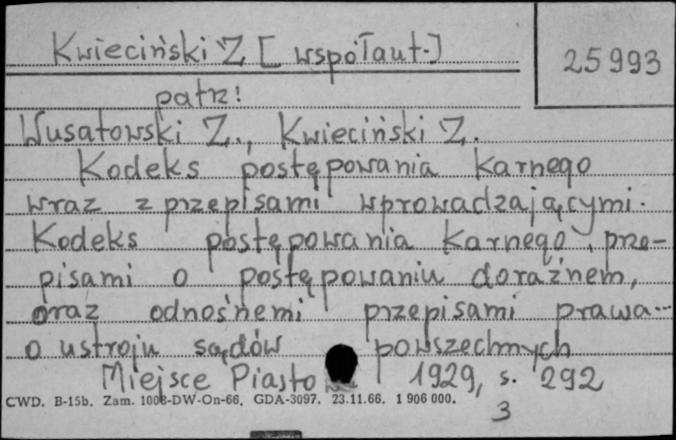 Kwieciński Z [współaut.]
25993
patrz!
Wusatowski Z., Kwieciński Z.
Kodeks postępowania karnego
wraz z przepisami wprowadzającymi.
Kodeks postępowania karnego, prze-
pisami o postępowaniu doraźnem,
oraz odnośnemi przepisami prawa...
o ustroju sądów powszechnych
Miejsce Piasto 1929, s. 292
CWD. B-15b. Zam. 1008-DW-On-66. GDA-3097. 23.11.66. 1 906 000.
3